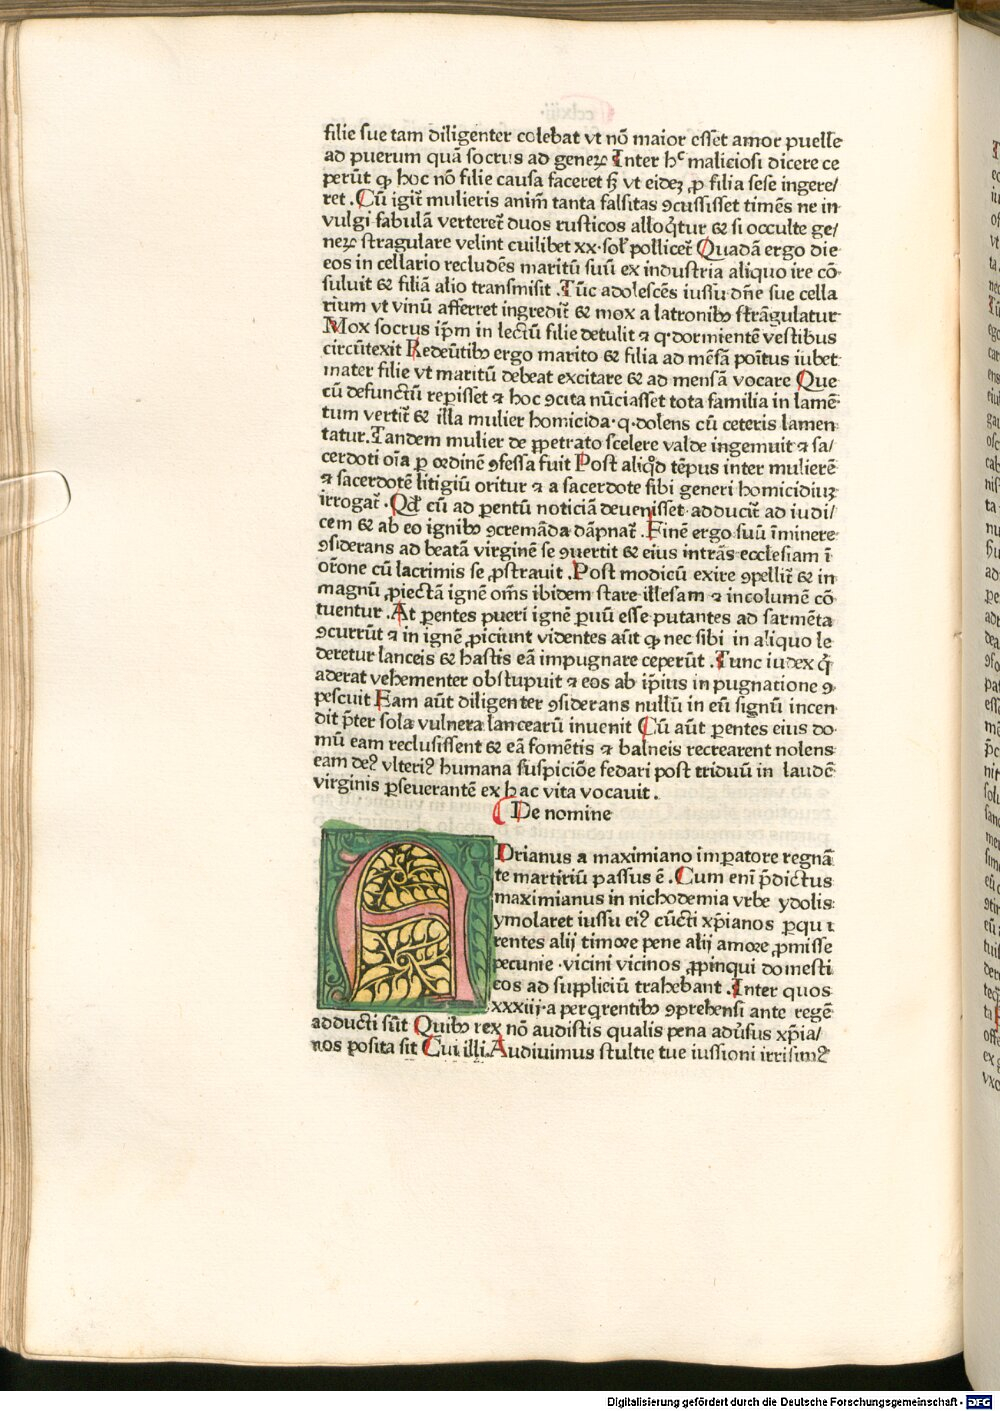 filie sue tam diligenter colebat vt nō maior esset amor puelle
ad puerum quā socrus ad geneꝝ Inter hͨ maliciosi dicere ce
perūt ꝙ hoc nō filie causa faceret sꝫ vt eideꝫ ꝓ filia sese ingere/
ret .Cū igit᷑ mulieris anim̄ tanta falsitas ꝯcussisset timēs ne in
vulgi fabulā verteret᷑ duos rusticos alloq̄tur ⁊ si occulte ge/
neꝝ stragulare velint cuilibet xx·sol̕ pollicet᷑ Quadā ergo die
eos in cellario recludēs maritū suū ex industria aliquo ire cō-
suluit ⁊ filiā alio transmisit .Tūc adolescēs iussu dn̄e sue cella
rium vt vinū afferret ingredit᷑ ⁊ mox a latronibꝫ strāgulatur
Mox socrus ip̄m in lectū filie detulit ⁊ q·dormientē vestibus
circūtexit Redeūtibꝫ ergo marito ⁊ filia ad mēsā poītus iubet
mater filie vt maritū debeat excitare ⁊ ad mensā vocare Que
cū defunctū reꝑisset ⁊ hoc ꝯcita nūciasset tota familia in lamē-
tum vertit᷑ ⁊ illa mulier homicida·q·dolens cū ceteris lamen
tatur.Tandem mulier de ꝑpetrato scelere valde ingemuit ⁊ sa/
cerdoti oīa ꝑ ordinē ꝯfessa fuit Post aliq̄d tēpus inter mulierē
⁊ sacerdotē litigiū oritur ⁊ a sacerdote sibi generi homicidiuꝫ
irrogat᷑ .Qd̕ cū ad ꝑentū noticiā deuenisset adducit᷑ ad iudi/
cem ⁊ ab eo ignibꝫ ꝯcremāda dāpnat᷑ .Finē ergo suū īminere
ꝯsiderans ad beatā virginē se ꝯuertit ⁊ eius intrās ecclesiam ī
or̄one cū lacrimis se ꝓstrauit .Post modicū exire ꝯpellit᷑ ⁊ in
magnū ꝓiectā ignē om̄s ibidem stare illesam ⁊ incolumē cō
tuentur .At ꝑentes pueri ignē ꝑuū esse putantes ad sarmēta
ꝯcurrūt ⁊ in ignē ꝓiciunt videntes aūt ꝙ nec sibi in aliquo le
deretur lanceis ⁊ hastis eā impugnare ceperūt .Tunc iudex q̄
aderat vehementer obstupuit ⁊ eos ab ip̄ius in pugnatione ꝯ-
pescuit Eam aūt diligenter ꝯsiderans nullū in eū signū incen
dit p̄ter sola vulnera lancearū inuenit Cū aūt ꝑentes eius do-
mū eam reclusissent ⁊ eā fomētis ⁊ balneis recrearent nolens
eam deꝰ vlteriꝰ humana suspiciōe fedari post triduū in laudē
virginis ꝑseuerantē ex hac vita vocauit .
De nomine
ADrianus a maximiano imꝑatore regnā
te martiriū passus ē .Cum enī p̄dictus
maximianus in nichodemia vrbe ydolis
ymolaret iussu eiꝰ cūcti xp̄ianos ꝑqui
rentes alij timore pene alij amore ꝓmisse
pecunie ·vicini vicinos ꝓpinqui domesti
cos ad suppliciū trahebant .Inter quos
xxxiij·a perqrentibꝫ ꝯprehensi ante regē
adducti sūt Quibꝫ rex nō audistis qualis pena adu̕sus xp̄ia/
nos posita sit Cui illi.Audiuimus stultie tue iussioni irrisimꝰ
Digitalisierung gefördert durch die Deutsche Forschungsgemeinschaft - DFG